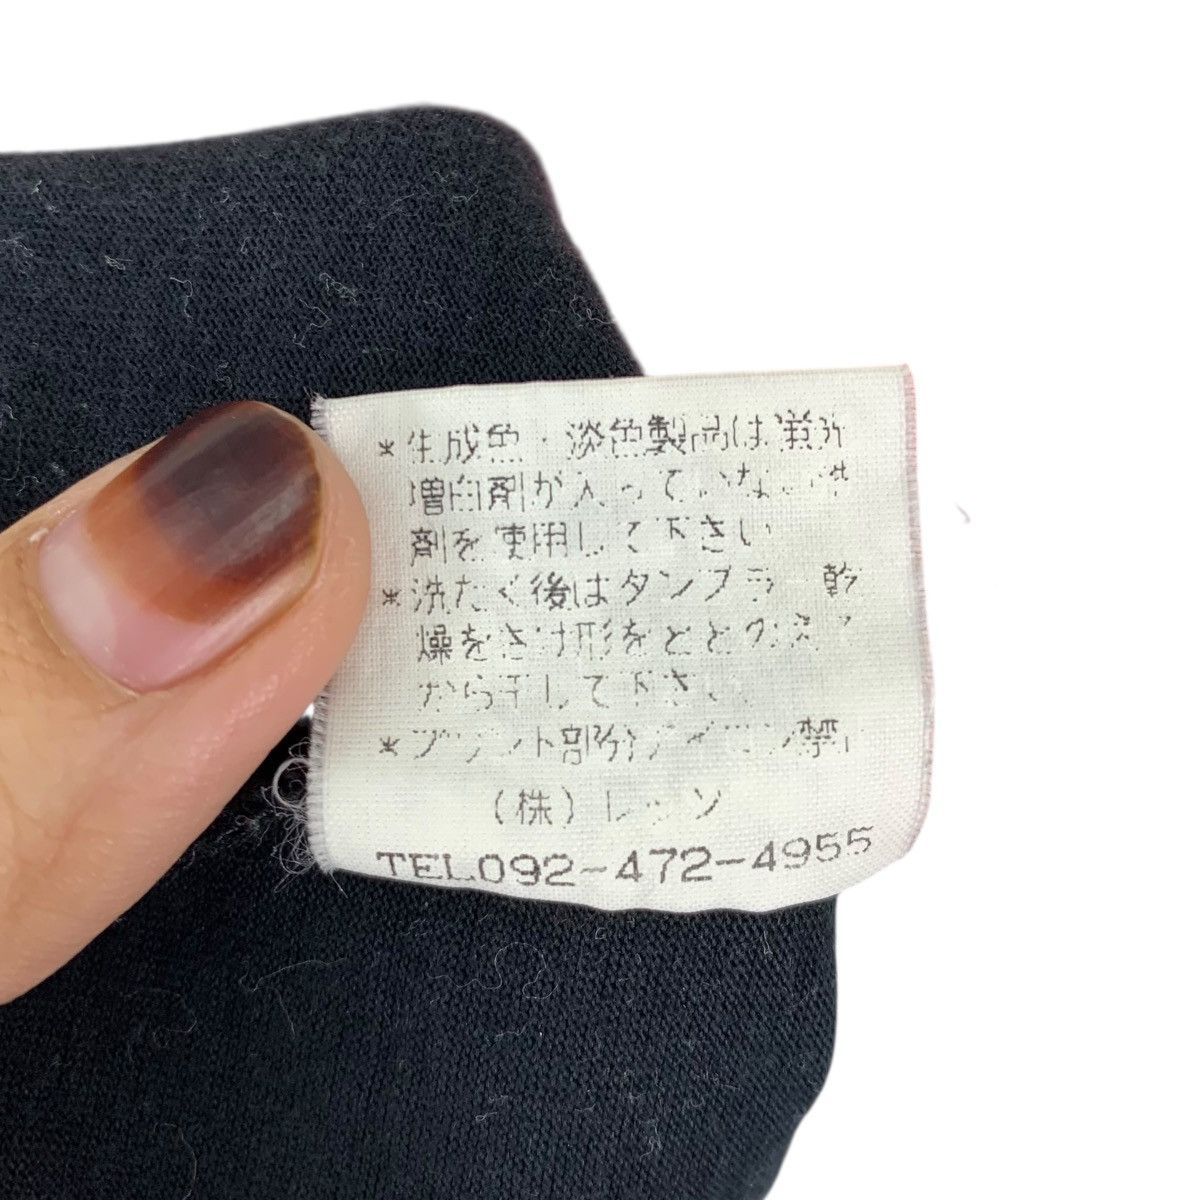 *生成色・淡色製品は蛍光
増白剤が入っていない洗
剤を使用して下さい
*洗たく後はタンブラー乾
燥をさけ形をととのえて
から干して下さい
*プリント部分アイロン禁止
(株)レッソ
TEL092-472-4955